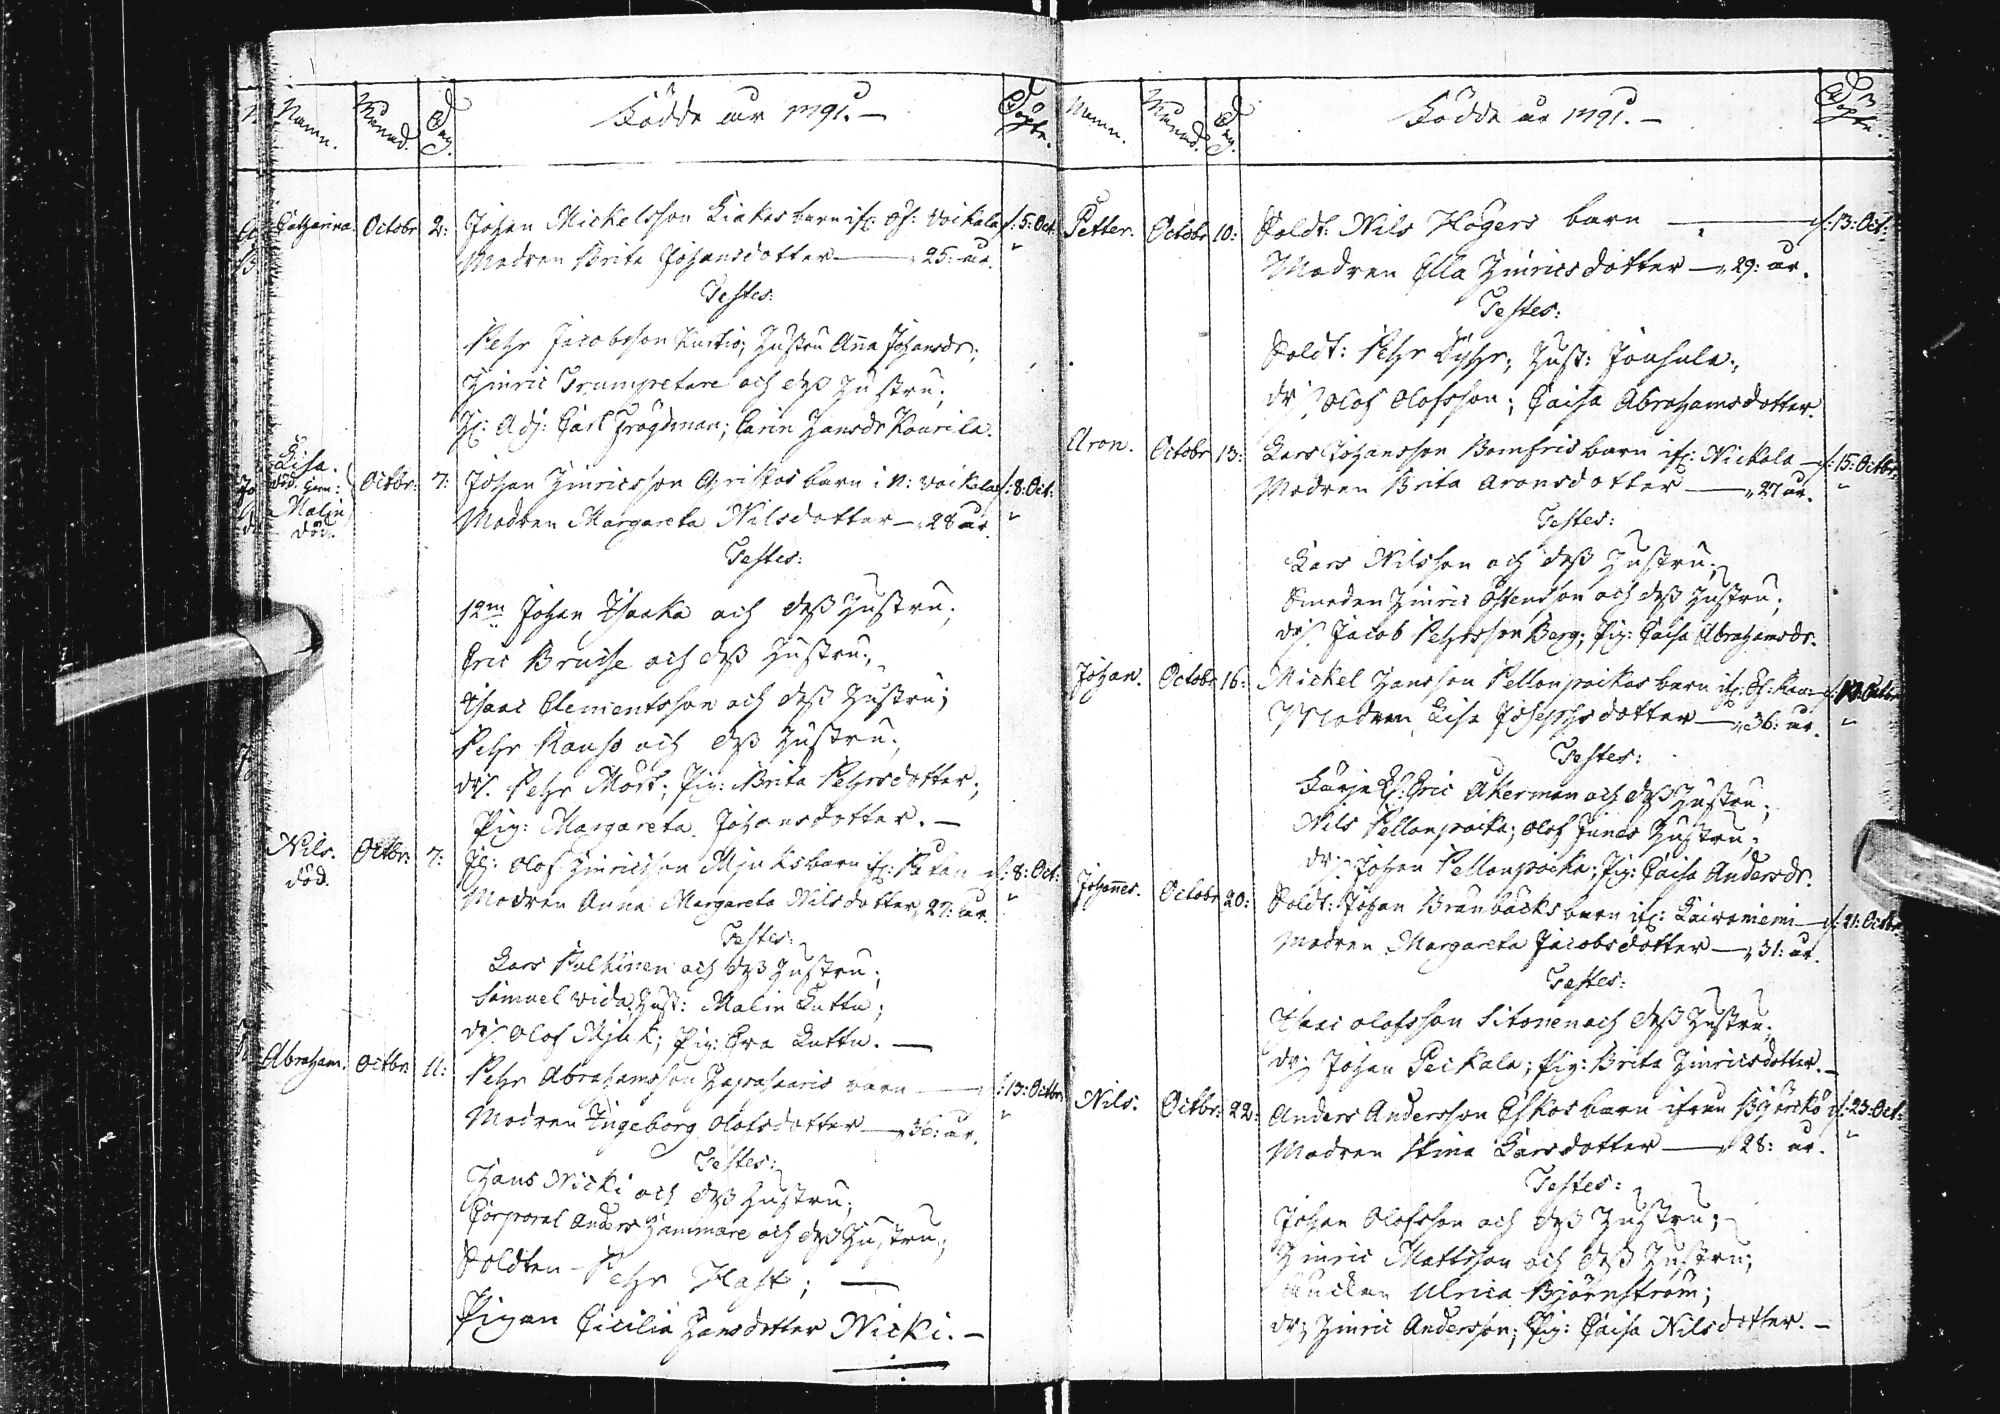 Namn. Månad. Dag. Födde år 1791. — Döpte.
Catharina. Octobr 2: Johan Mickelsson Kiakas barn ifr: Öf: Voikala d: 5: Oct:
Modren Brita Johansdotter — 25: år.
Testes:
Pehr Jacobsson Kurtis; Hustru Anna Johansdr;
Hinric Trumpetare och dess Hustru;
Hr: Adj: Carl Frögdman; Carin Hansdr Kourila.
Lisa. död. Gem: Malin död. Octbr: 7: Johan Hinricsson Gristas barn i N: Voikala d: 8: Oct:
Modren Margareta Nilsdotter — 28 år.
Testes:
12mn Johan Isaaka och dess Hustru;
Eric Bruse och dess Hustru;
Isaac Clementsson och dess Hustru;
Pehr Kauso och dess Hustru;
dr: Pehr Mört; Pig: Brita Pehrsdotter;
Pig: Margareta Johansdotter. —
Nils. död. Octbr: 7: Olof Hinricsson Mjuks barn ifr: d: 8: Oct:
Modren Anna Margareta Nilsdotter, 27: år.
Testes:
Lars Pulkinen och dess Hustru;
Samuel Vida Hust: Malin Luttu;
dr: Olof Mjuk; Pig: Eva Luttu. —
Abraham. Octbr: 11: Pehr Abrahamsson Hapasaaris barn — d: 13: Octbr:
Modren Ingeborg Olofsdotter — 36: år.
Testes:
Hans Nicki och dess Hustru;
Corporal Anders Hammare och dess Hustru;
Soldten Pehr Hast; —
Pigan Cicilia Hansdotter Nicki. —
Namn. Månad. Dag. Födde år 1791. — Döpte.
Petter. Octobr 10: Soldt: Nils Högers barn — d: 13: Oct:
Modren Ella Hinricsdotter — 29: år.
Testes:
Soldt: Pehr Hust: Jousula;
dr: Olof Olofsson; Caisa Abrahamsdotter.
Aron. Octobr 13: Lars Johansson Bomfris barn ifr: Nickala — d: 15: Octbr:
Modren Brita Aronsdotter — 27 år.
Testes:
Lars Nilsson och dess Hustru;
Smeden Hinric Östensson och dess Hustru;
dr: Jacob Pehrsson Berg; Pig: Caisa Abrahamsdr.
Johan. Octobr 16: Mickel Hansson Pellonpaikas barn ifr: Öf:
Modren Lisa Josephsdotter — 36: år.
Testes:
Färje K: Eric Åkerman och dess Hustru;
Nils Pellonpaika; Olof Junes Hustru;
dr: Johan Pellonpaika; Pig: Caisa Andersdr.
Johannes. Octobr 20: Soldt: Johan Brånbäcks barn ifr: Kairaniemi — d: 21: Octbr:
Modren Margareta Jacobsdotter — 31: år.
Testes:
Isaac Olofsson Sitonen och dess Hustru;
dr: Johan Peikala; Pig: Brita Hinricsdotter. —
Nils. Octbr: 22: Anders Andersson Eskos barn ifrån Björckö d: 23: Oct:
Modren Stina Larsdotter — 28: år.
Testes:
Johan Olofsson och dess Hustru;
Hinric Mattsson och dess Hustru;
Änckan Ulrica Björnström;
dr: Hinric Andersson; Pig: Caisa Nilsdotter. —